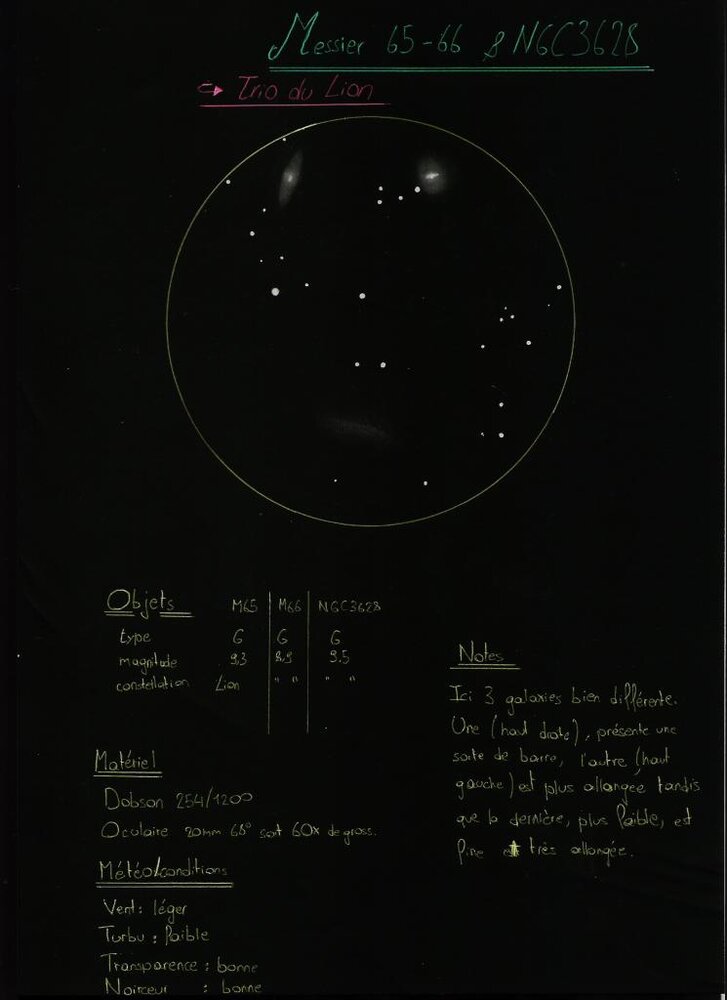 Messier 65-66 & NGC3628
⇨ Trio du Lion
Objets M65 M66 NGC3628
type G G G
magnitude 9,3 8,9 9.5
constellation Lion " " " "
Notes
Ici 3 galaxies bien différente.
Une (haut droite), présente une
sorte de barre, l'autre (haut
gauche) est plus allongée tandis
que la dernière, plus faible, est
fine et très allongée.
Matériel
Dobson 254/1200
Oculaire 20mm 68° soit 60x de gross.
Météo/conditions
Vent : léger
Turbu : faible
Transparence : bonne
Noirceur : bonne